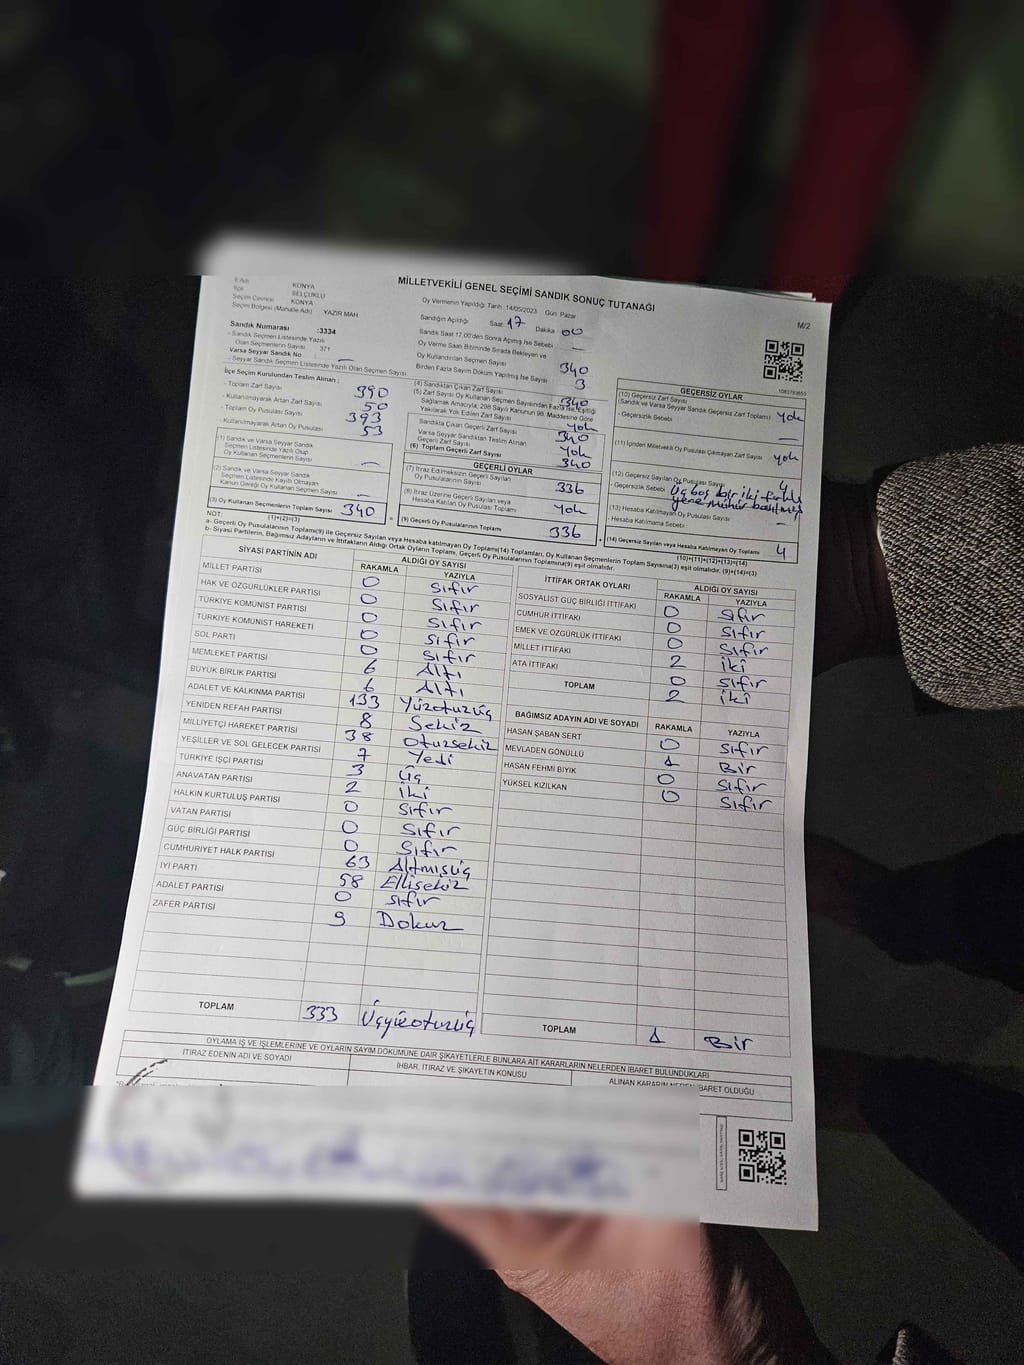 MİLLETVEKİLİ GENEL SEÇİMİ SANDIK SONUÇ TUTANAĞI
M/2
İl Adı KONYA
İlçe SELÇUKLU
Seçim Çevresi KONYA
Seçim Bölgesi (Mahalle Adı) YAZIR MAH
Sandık Numarası :3334
- Sandık Seçmen Listesinde Yazılı
Olan Seçmenlerin Sayısı 371
- Varsa Seyyar Sandık No —
- Seyyar Sandık Seçmen Listesinde Yazılı Olan Seçmen Sayısı
Oy Vermenin Yapıldığı Tarih : 14/05/2023 Gün Pazar
Sandığın Açıldığı Saat 17 Dakika 00
Sandık Saat 17.00'den Sonra Açılmış İse Sebebi —
Oy Verme Saati Bitiminde Sırada Bekleyen ve
Oy Kullandırılan Seçmen Sayısı
Birden Fazla Sayım Döküm Yapılmış İse Sayısı
340
3
İlçe Seçim Kurulundan Teslim Alınan ;
- Toplam Zarf Sayısı 390
- Kullanılmayarak Artan Zarf Sayısı 50
- Toplam Oy Pusulası Sayısı 393
- Kullanılmayarak Artan Oy Pusulası 53
(1) Sandık ve Varsa Seyyar Sandık
Seçmen Listesinde Yazılı Olup
Oy Kullanan Seçmenlerin Sayısı —
(2) Sandık ve Varsa Seyyar Sandık
Seçmen Listesinde Kayıtlı Olmayan
Kanun Gereği Oy Kullanan Seçmen Sayısı —
(3) Oy Kullanan Seçmenlerin Toplam Sayısı 340
(1)+(2)=(3)
(4) Sandıktan Çıkan Zarf Sayısı 340
(5) Zarf Sayısı Oy Kullanan Seçmen Sayısından Fazla İse, Eşitliği
Sağlamak Amacıyla; 298 Sayılı Kanunun 98. Maddesine Göre
Yakılarak Yok Edilen Zarf Sayısı yok
Sandıkta Çıkan Geçerli Zarf Sayısı 340
Varsa Seyyar Sandıktan Teslim Alınan
Geçerli Zarf Sayısı yok
(6) Toplam Geçerli Zarf Sayısı 340
GEÇERLİ OYLAR
(7) İtiraz Edilmeksizin Geçerli Sayılan
Oy Pusulalarının Sayısı 336
(8) İtiraz Üzerine Geçerli Sayılan veya
Hesaba Katılan Oy Pusulası Toplamı yok
(9) Geçerli Oy Pusulalarının Toplamı 336
1083793550
GEÇERSİZ OYLAR
(10) Geçersiz Zarf Sayısı
(Sandık ve Varsa Seyyar Sandık Geçersiz Zarf Toplamı) yok
- Geçersizlik Sebebi —
(11) İçinden Milletvekili Oy Pusulası Çıkmayan Zarf Sayısı yok
(12) Geçersiz Sayılan Oy Pusulası Sayısı 4
- Geçersizlik Sebebi Üç boş bir iki farklı
yere mühür basılmış
(13) Hesaba Katılmayan Oy Pusulası Sayısı
- Hesaba Katılmama Sebebi —
(14) Geçersiz Sayılan veya Hesaba Katılmayan Oy Toplamı 4
(10)+(11)+(12)+(13)=(14)
NOT:
a- Geçerli Oy Pusulalarının Toplamı(9) ile Geçersiz Sayılan veya Hesaba Katılmayan Oy Toplamı(14) Toplamları, Oy Kullanan Seçmenlerin Toplam Sayısına(3) eşit olmalıdır. (9)+(14)=(3)
b- Siyasi Partilerin, Bağımsız Adayların ve İttifakların Aldığı Ortak Oyların Toplamı, Geçerli Oy Pusulalarının Toplamına(9) eşit olmalıdır.
SİYASİ PARTİNİN ADI ALDIĞI OY SAYISI
RAKAMLA YAZIYLA
MİLLET PARTİSİ 0 Sıfır
HAK VE ÖZGÜRLÜKLER PARTİSİ 0 Sıfır
TÜRKİYE KOMÜNİST PARTİSİ 0 Sıfır
TÜRKİYE KOMÜNİST HAREKETİ 0 Sıfır
SOL PARTİ 0 Sıfır
MEMLEKET PARTİSİ 6 Altı
BÜYÜK BİRLİK PARTİSİ 6 Altı
ADALET VE KALKINMA PARTİSİ 133 Yüzotuzüç
YENİDEN REFAH PARTİSİ 8 Sekiz
MİLLİYETÇİ HAREKET PARTİSİ 38 otuzsekiz
YEŞİLLER VE SOL GELECEK PARTİSİ 7 Yedi
TÜRKİYE İŞÇİ PARTİSİ 3 Üç
ANAVATAN PARTİSİ 2 iki
HALKIN KURTULUŞ PARTİSİ 0 Sıfır
VATAN PARTİSİ 0 Sıfır
GÜÇ BİRLİĞİ PARTİSİ 0 Sıfır
CUMHURİYET HALK PARTİSİ 63 Altmışüç
İYİ PARTİ 58 Ellisekiz
ADALET PARTİSİ 0 sıfır
ZAFER PARTİSİ 9 Dokuz
TOPLAM 333 Üçyüzotuzüç
İTTİFAK ORTAK OYLARI ALDIĞI OY SAYISI
RAKAMLA YAZIYLA
SOSYALİST GÜÇ BİRLİĞİ İTTİFAKI 0 Sıfır
CUMHUR İTTİFAKI 0 Sıfır
EMEK VE ÖZGÜRLÜK İTTİFAKI 0 Sıfır
MİLLET İTTİFAKI 2 iki
ATA İTTİFAKI 0 Sıfır
TOPLAM 2 iki
BAĞIMSIZ ADAYIN ADI VE SOYADI RAKAMLA YAZIYLA
HASAN ŞABAN SERT 0 Sıfır
MEVLADEN GÖNÜLLÜ 1 Bir
HASAN FEHMİ BIYIK 0 Sıfır
YÜKSEL KIZILKAN 0 Sıfır
TOPLAM 1 Bir
OYLAMA İŞ VE İŞLEMLERİNE VE OYLARIN SAYIM DÖKÜMÜNE DAİR ŞİKAYETLERLE BUNLARA AİT KARARLARIN NELERDEN İBARET BULUNDUKLARI
İTİRAZ EDENİN ADI VE SOYADI İHBAR, İTİRAZ VE ŞİKAYETİN KONUSU ALINAN KARARIN NEDEN İBARET OLDUĞU